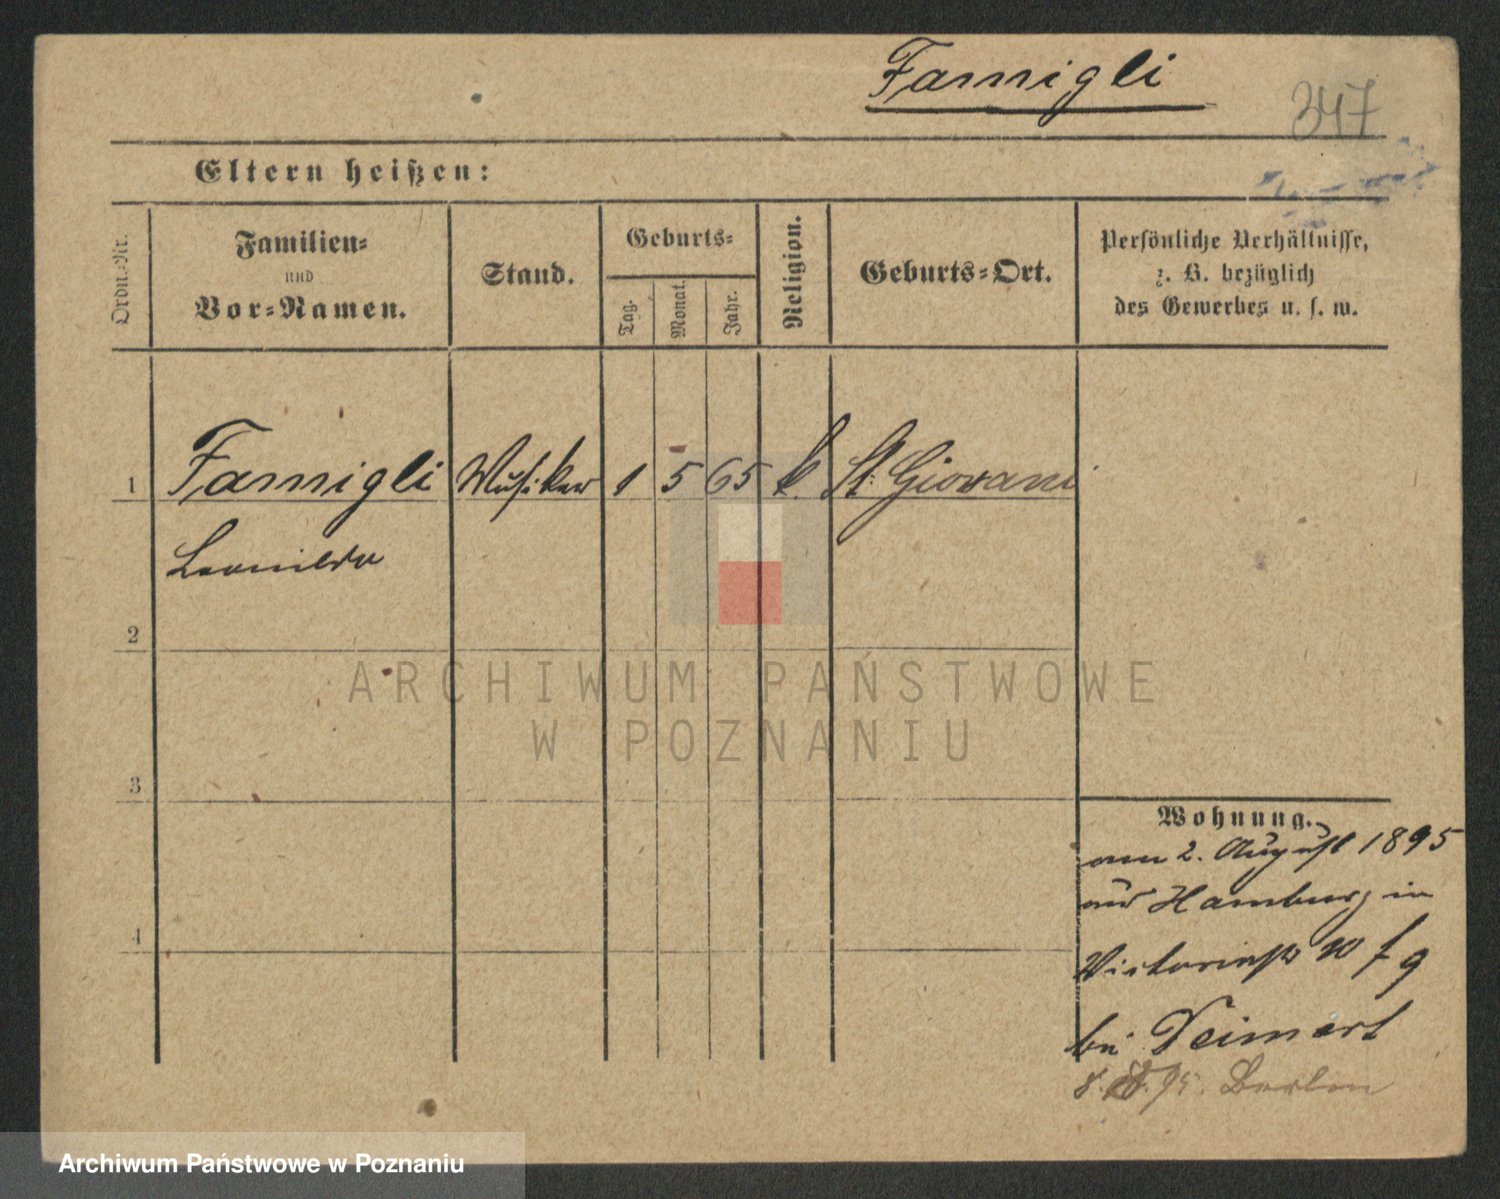 Famigli
347
Eltern heißen:
Ordn.-Nr.
Familien-
und
Vor-Namen.
Stand.
Geburts-
Tag.
Monat.
Jahr.
Religion.
Geburts-Ort.
Persönliche Verhältnisse,
z. B. bezüglich
des Gewerbes u. s. w.
1 Famigli Musiker 1 5 65 k. St. Giovani
Leonildo
2
3
4
Wohnung.
am 2. August 1895
aus Hamburg in
Victoriastr
bei Deimert
8. 95. Berlin
ARCHIWUM PAŃSTWOWE
W POZNANIU
Archiwum Państwowe w Poznaniu